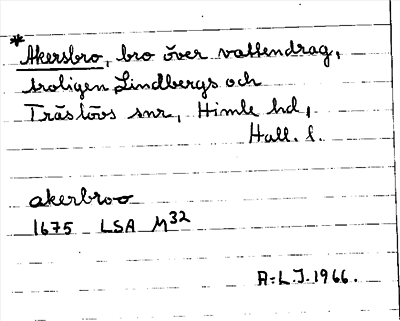 *Akersbro, bro över vattendrag,
troligen Lindbergs och
Träslövs snr, Himle hd,
Hall. l.
akerbroo
1675 LSA M32
A-L.J. 1966.